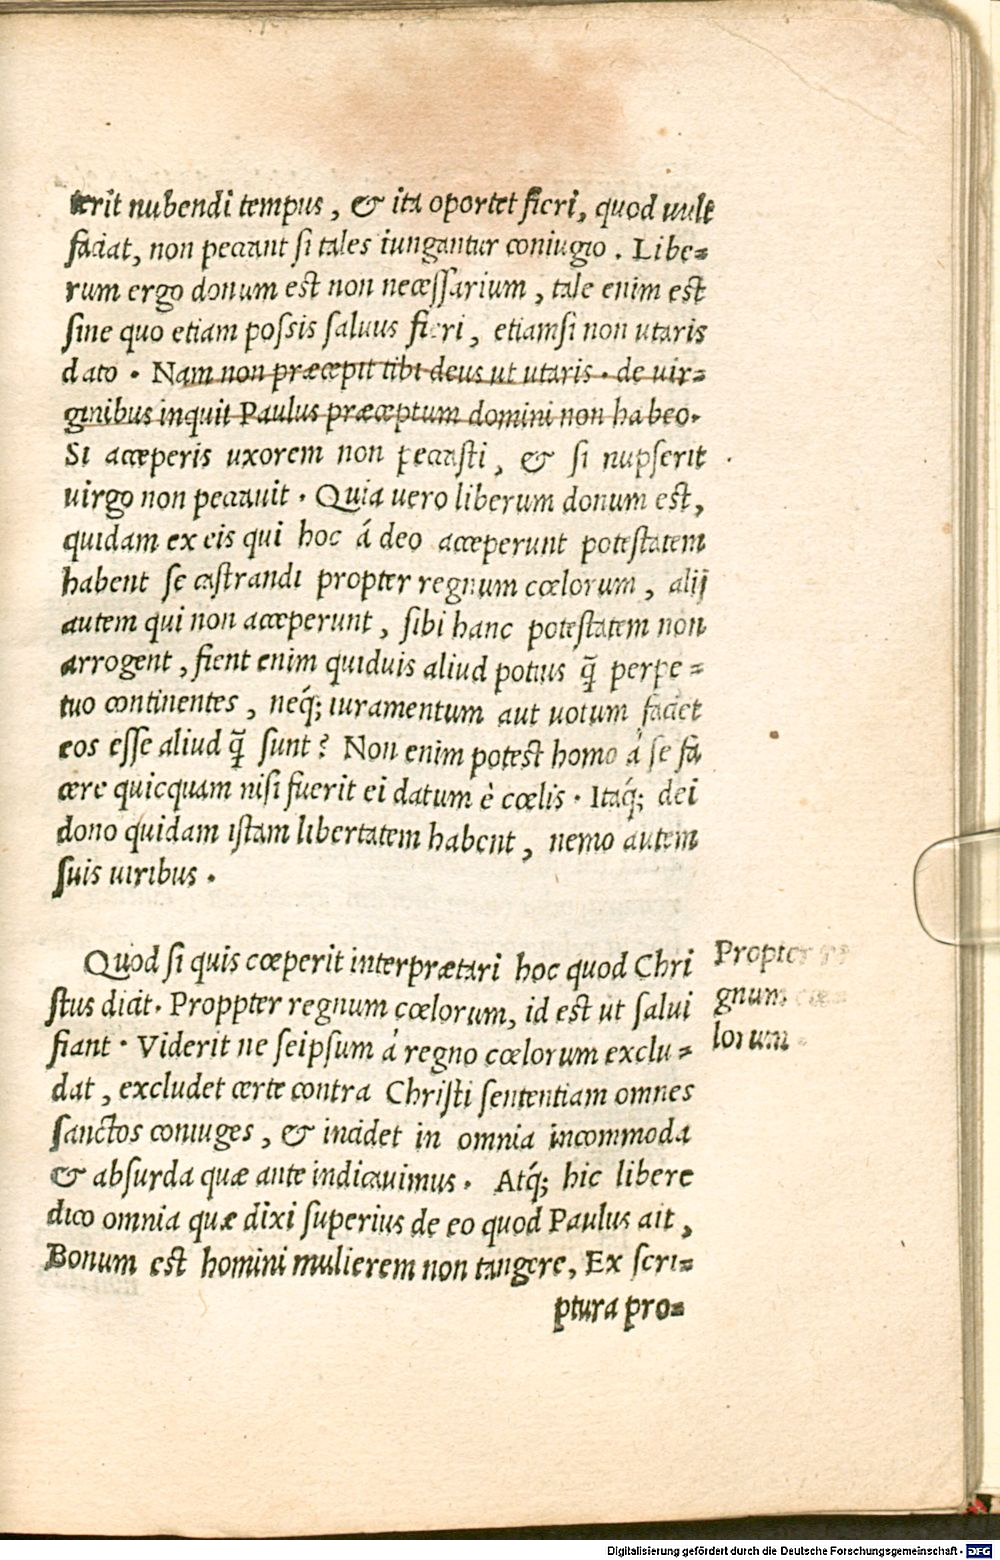 terit nubendi tempus, & ita oportet fieri, quod uult
faciat, non peccant si tales iungantur coniugio. Libe=
rum ergo donum est non necessarium, tale enim est
sine quo etiam possis saluus fieri, etiamsi non utaris
dato. Nam non præcepit tibi deus ut utaris. de uir=
ginibus inquit Paulus præceptum domini non habeo.
Si acceperis uxorem non peccasti, & si nupserit
uirgo non peccauit. Quia uero liberum donum est,
quidam ex eis qui hoc á deo acceperunt potestatem
habent se castrandi propter regnum cœlorum, alij
autem qui non acceperunt, sibi hanc potestatem non
arrogent, fient enim quiduis aliud potius q̃ perpe=
tuo continentes, neq́; iuramentum aut uotum faciet
eos esse aliud q̃ sunt? Non enim potest homo á se fa
cere quicquam nisi fuerit ei datum è cœlis. Itaq́; dei
dono quidam istam libertatem habent, nemo autem
suis uiribus.
Quod si quis cœperit interprætari hoc quod Chri
stus dicit. Proppter regnum cœlorum, id est ut salui
fiant. Viderit ne seipsum á regno cœlorum exclu=
dat, excludet certe contra Christi sententiam omnes
sanctos coniuges, & incidet in omnia incommoda
& absurda quæ ante indicauimus. Atq́; hic libere
dico omnia quæ dixi superius de eo quod Paulus ait,
Bonum est homini mulierem non tangere, Ex scri=
ptura pro=
Propter re
gnum cœ
lorum.
Digitalisierung gefördert durch die Deutsche Forschungsgemeinschaft - DFG